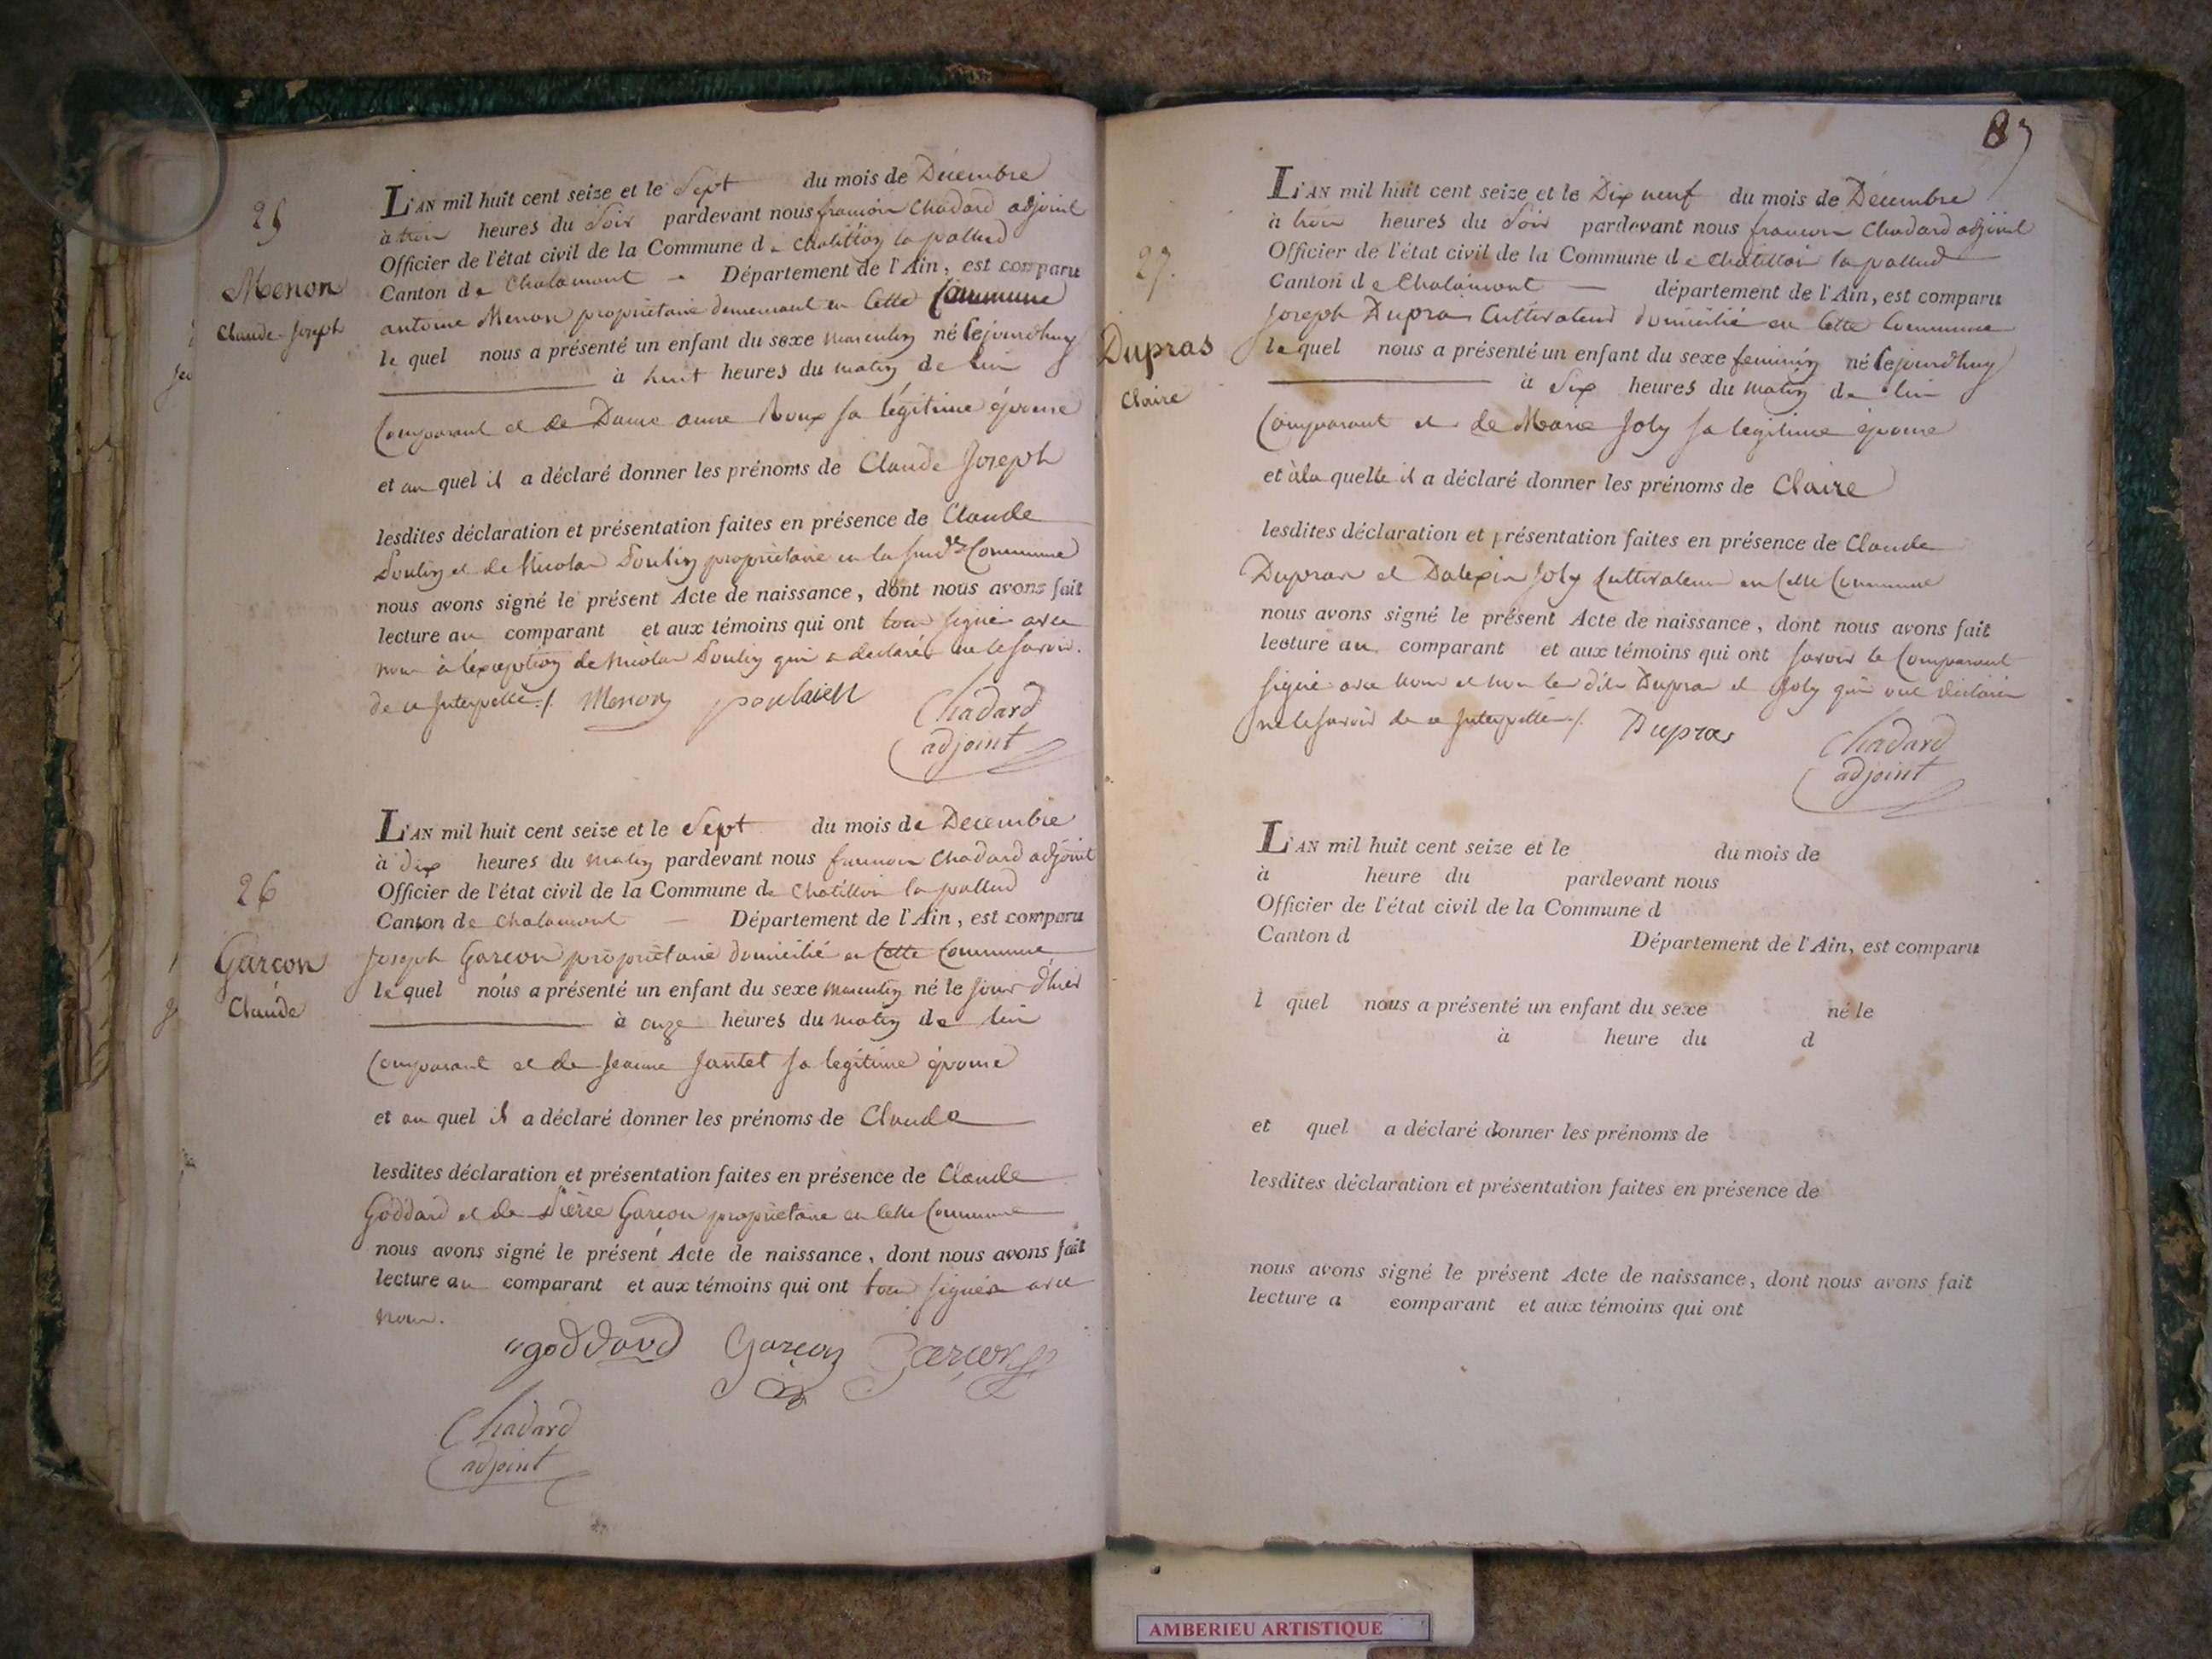 25
Menon
Claude-Joseph
L'AN mil huit cent seize et le Sept du mois de Décembre
à trois heures du Soir pardevant nous françois Chadard adjoint
Officier de l'état civil de la Commune de Chatillon la pallud
Canton de Chalamont — Département de l'Ain, est comparu
antoine Menon propriétaire demeurant en Cette Commune
le quel nous a présenté un enfant du sexe masculin né Cejourdhuy
à huit heures du matin de lui
Comparant et de Dame anne Roux sa légitime épouse
et au quel il a déclaré donner les prénoms de Claude Joseph
lesdites déclaration et présentation faites en présence de Claude
et de Nicolas propriétaire en la Commune
nous avons signé le présent Acte de naissance, dont nous avons fait
lecture au comparant et aux témoins qui ont tous signé avec
nous à l'exception de Nicolas qui a declaré ne le savoir.
de ce Interpellé./. Menon
Chadard
adjoint
26
Garcon
Claude
L'AN mil huit cent seize et le Sept du mois de Decembre
à dix heures du matin pardevant nous françois Chadard adjoint
Officier de l'état civil de la Commune de Chatillon la pallud
Canton de Chalamont — Département de l'Ain, est comparu
Joseph Garcon propriétaire domicilié en Cette Commune
le quel nous a présenté un enfant du sexe masculin né le jour d'hier
à onze heures du matin de lui
Comparant et de Jeanne Jantet sa legitime épouse
et au quel il a déclaré donner les prénoms de Claude
lesdites déclaration et présentation faites en présence de Claude
Goddard et de Pierre Garcon propriétaire en Cette Commune
nous avons signé le présent Acte de naissance, dont nous avons fait
lecture au comparant et aux témoins qui ont tous signés avec
nous.
goddard Garçon Garcon
Chadard
adjoint
87
27.
Dupras
Claire
L'AN mil huit cent seize et le Dix neuf du mois de Décembre
à trois heures du Soir pardevant nous françois Chadard adjoint
Officier de l'état civil de la Commune de Chatillon la pallud
Canton de Chalamont — département de l'Ain, est comparu
Joseph Dupras Cultivateur domicilié en Cette Commune
le quel nous a présenté un enfant du sexe feminin né Cejourdhuy
à Six heures du matin de lui
Comparant et de Marie Joly sa legitime épouse
et à la quelle il a déclaré donner les prénoms de Claire
lesdites déclaration et présentation faites en présence de Claude
Dupras et Joly Cultivateurs en Cette Commune
nous avons signé le présent Acte de naissance, dont nous avons fait
lecture au comparant et aux témoins qui ont savoir le Comparant
signé avec nous et non les dits Dupras et Joly qui ont déclaré
ne le savoir de ce Interpellés./. Dupras
Chadard
adjoint
L'AN mil huit cent seize et le du mois de
à heure du pardevant nous
Officier de l'état civil de la Commune d
Canton d Département de l'Ain, est comparu
l quel nous a présenté un enfant du sexe né le
à heure du d
et quel a déclaré donner les prénoms de
lesdites déclaration et présentation faites en présence de
nous avons signé le présent Acte de naissance, dont nous avons fait
lecture a comparant et aux témoins qui ont
AMBERIEU ARTISTIQUE